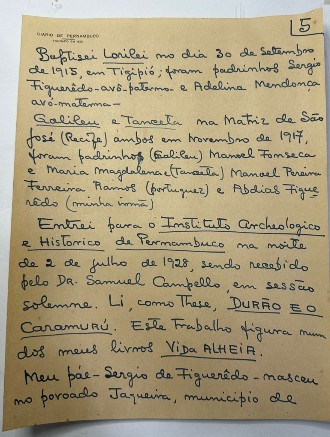 5
DIARIO DE PERNAMBUCO
Baptisei Lorilei no dia 30 de Setembro
de 1915, em Tigipió; foram padrinhos Sergio
Figuerêdo-avô-paterno e Adelina Mendonca
avó-materna-
Galileu e Tanceta na Matriz de São
José (Recife) ambos em Novembro de 1917,
foram padrinhos (Galileu) Manoel Fonseca
e Maria Magdalena e (Tanceta) Manoel Pereira
Ferreira Ramos (portuguez) e Abdias Figue-
rêdo (minha irmã)
Entrei para o Instituto Archeologico
e Historico de Pernambuco na noite
de 2 de julho de 1928, sendo recebido
pelo DR. Samuel Campello, em sessão
solemne. Li, como These, DURÃO E O
CARAMURÚ. Este Trabalho figura num
dos meus livros VIDA ALHEIA.
Meu páe-Sergio de Figuerêdo-nasceu
no povoado Jaqueira, municipio de